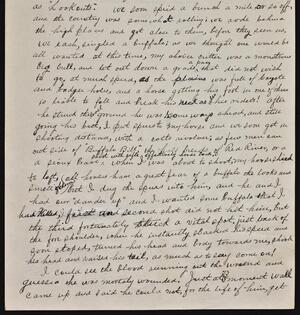 as "Lookouts". We soon spied a bunch a mile or so off,
and the country was somewhat rolling; we rode behind
the high plains and got close to them, before they seen us,
we each, singled a Buffalo; as we thought one would be
all wanted at this time; my choice was a monstrous
Big bull, and lit out down a grade, that did not wish
to go, at much speed, as the plains was full of
and badger holes, and a horse getting his foot in one of them
is liable to fall and break his neck or his riders! After
he struck the ground he was some ways ahead, and still
going his best, I put spurs to my horse and we soon got in
shooting distance, with a colts revolver; as few men ever
out side of Buffalo Bill, the half breeds of Red River, or a
a Sioux Buck, when I was about to shoot, my horse
to left; all horses have a great fear of a buffalo the looks and
smell; but I dug the spurs into him, and he and I
had our "dander up" and I wanted some Buffalo that I
had killed; first and second shot did not hit him, but
the third fortunately struck a vital spot, just back of
the fore shoulder, when he instantly slacked his speed and
soon stopped, turned his head and body towards me, shook
his head and raised his tail, as much as to say come on!
I could see the blood running out the wound and
guess he was mortaly wounded, Just at moment Walt
came up and said he could not, for the life of him, get